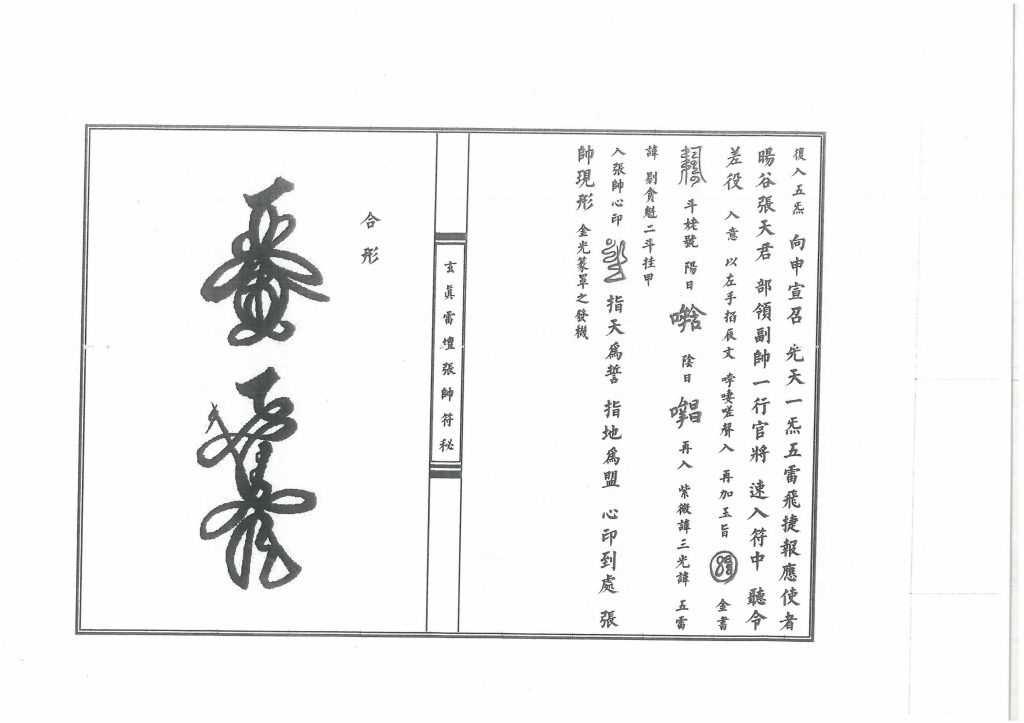 復入五炁 向申宣召 先天一炁五雷飛捷報應使者
暘谷張天君 部領副帥一行官將 速入符中 聽令
差役 入意 以左手掐辰文 嗟聲入 再加玉旨 金書
斗姥號 陽日 陰日 再入 紫微諱三光諱 五雷
諱 剔貪魁二斗挂甲
入張帥心印 指天為誓 指地為盟 心印到處 張
帥現形 金光篆罩之發機
玄眞雷壇張帥符秘
合形